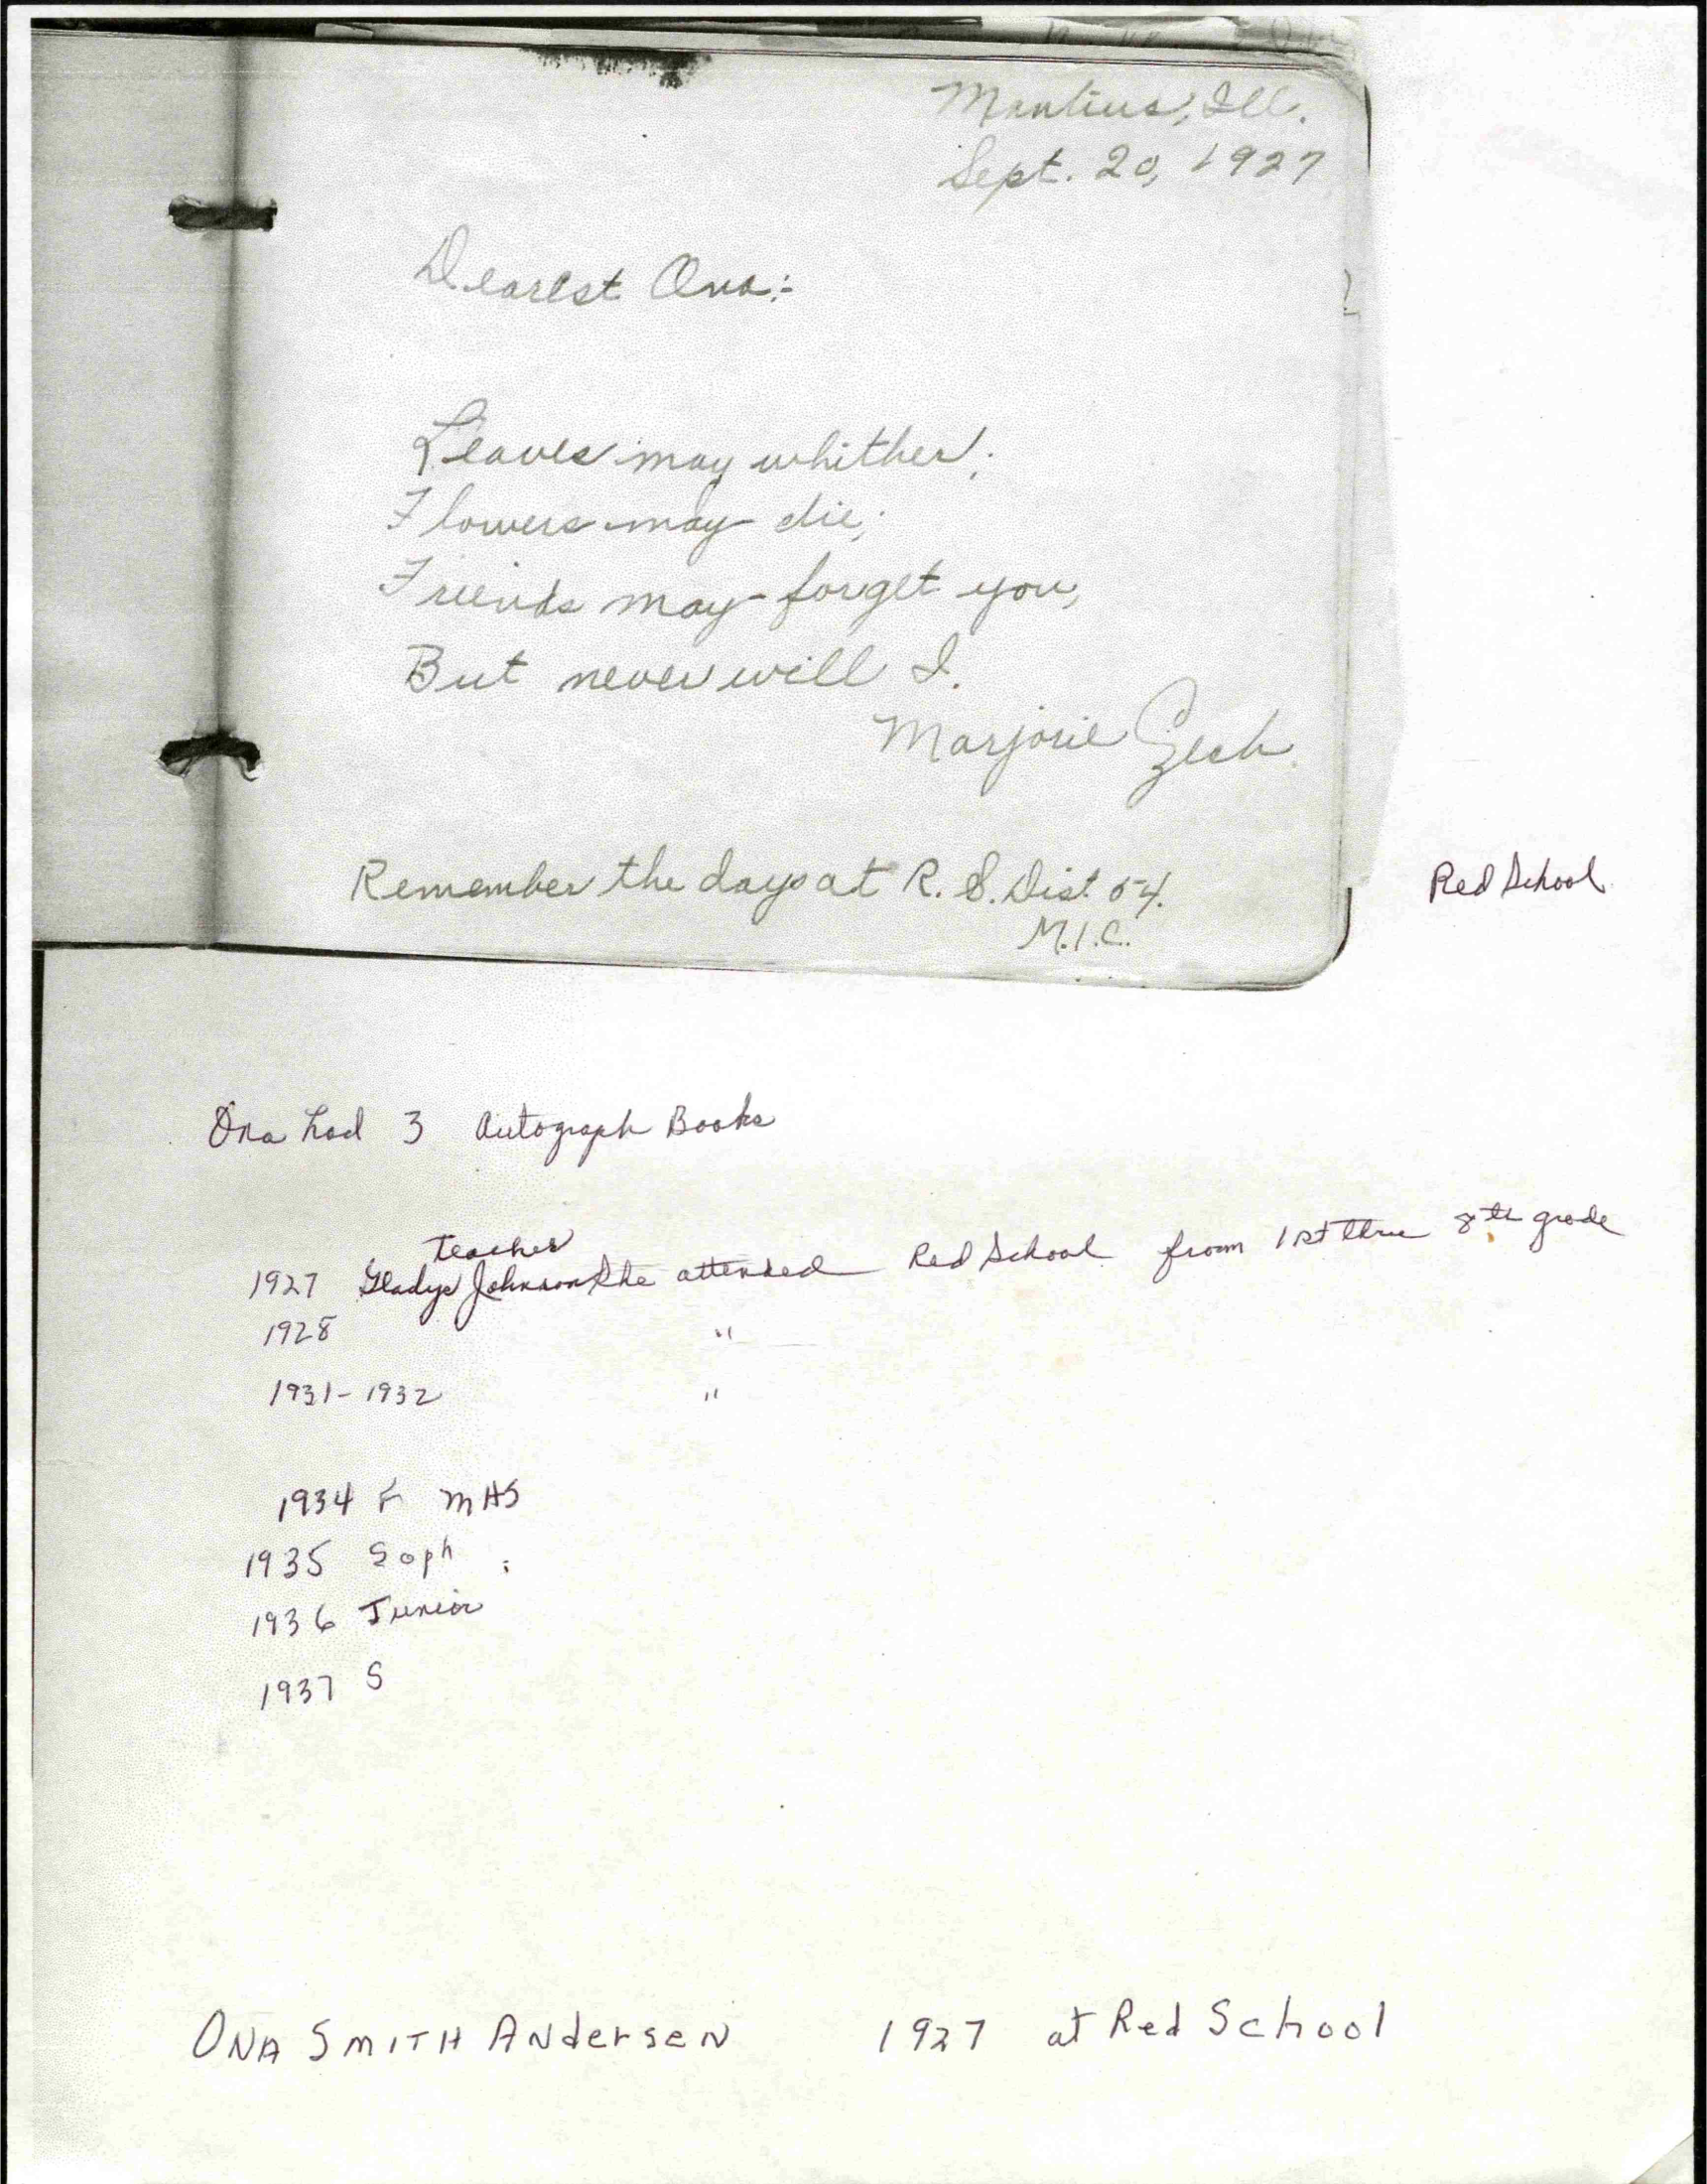 Manlius, Ill.
Sept. 20, 1927
Dearest Ona:-
Leaves may whither;
Flowers may die;
Friends may forget you,
But never will I.
Marjorie Zech
Remember the days at R. S. Dist. 54.
M.I.C.
Red School
Ona had 3 Autograph Books
teacher
1927 Gladys Johnson She attended Red School from 1st thru 8th grade
1928 "
1931-1932 "
1934 F MHS
1935 Soph
1936 Junior
1937 S
ONA SMITH ANdersEN 1927 at Red School